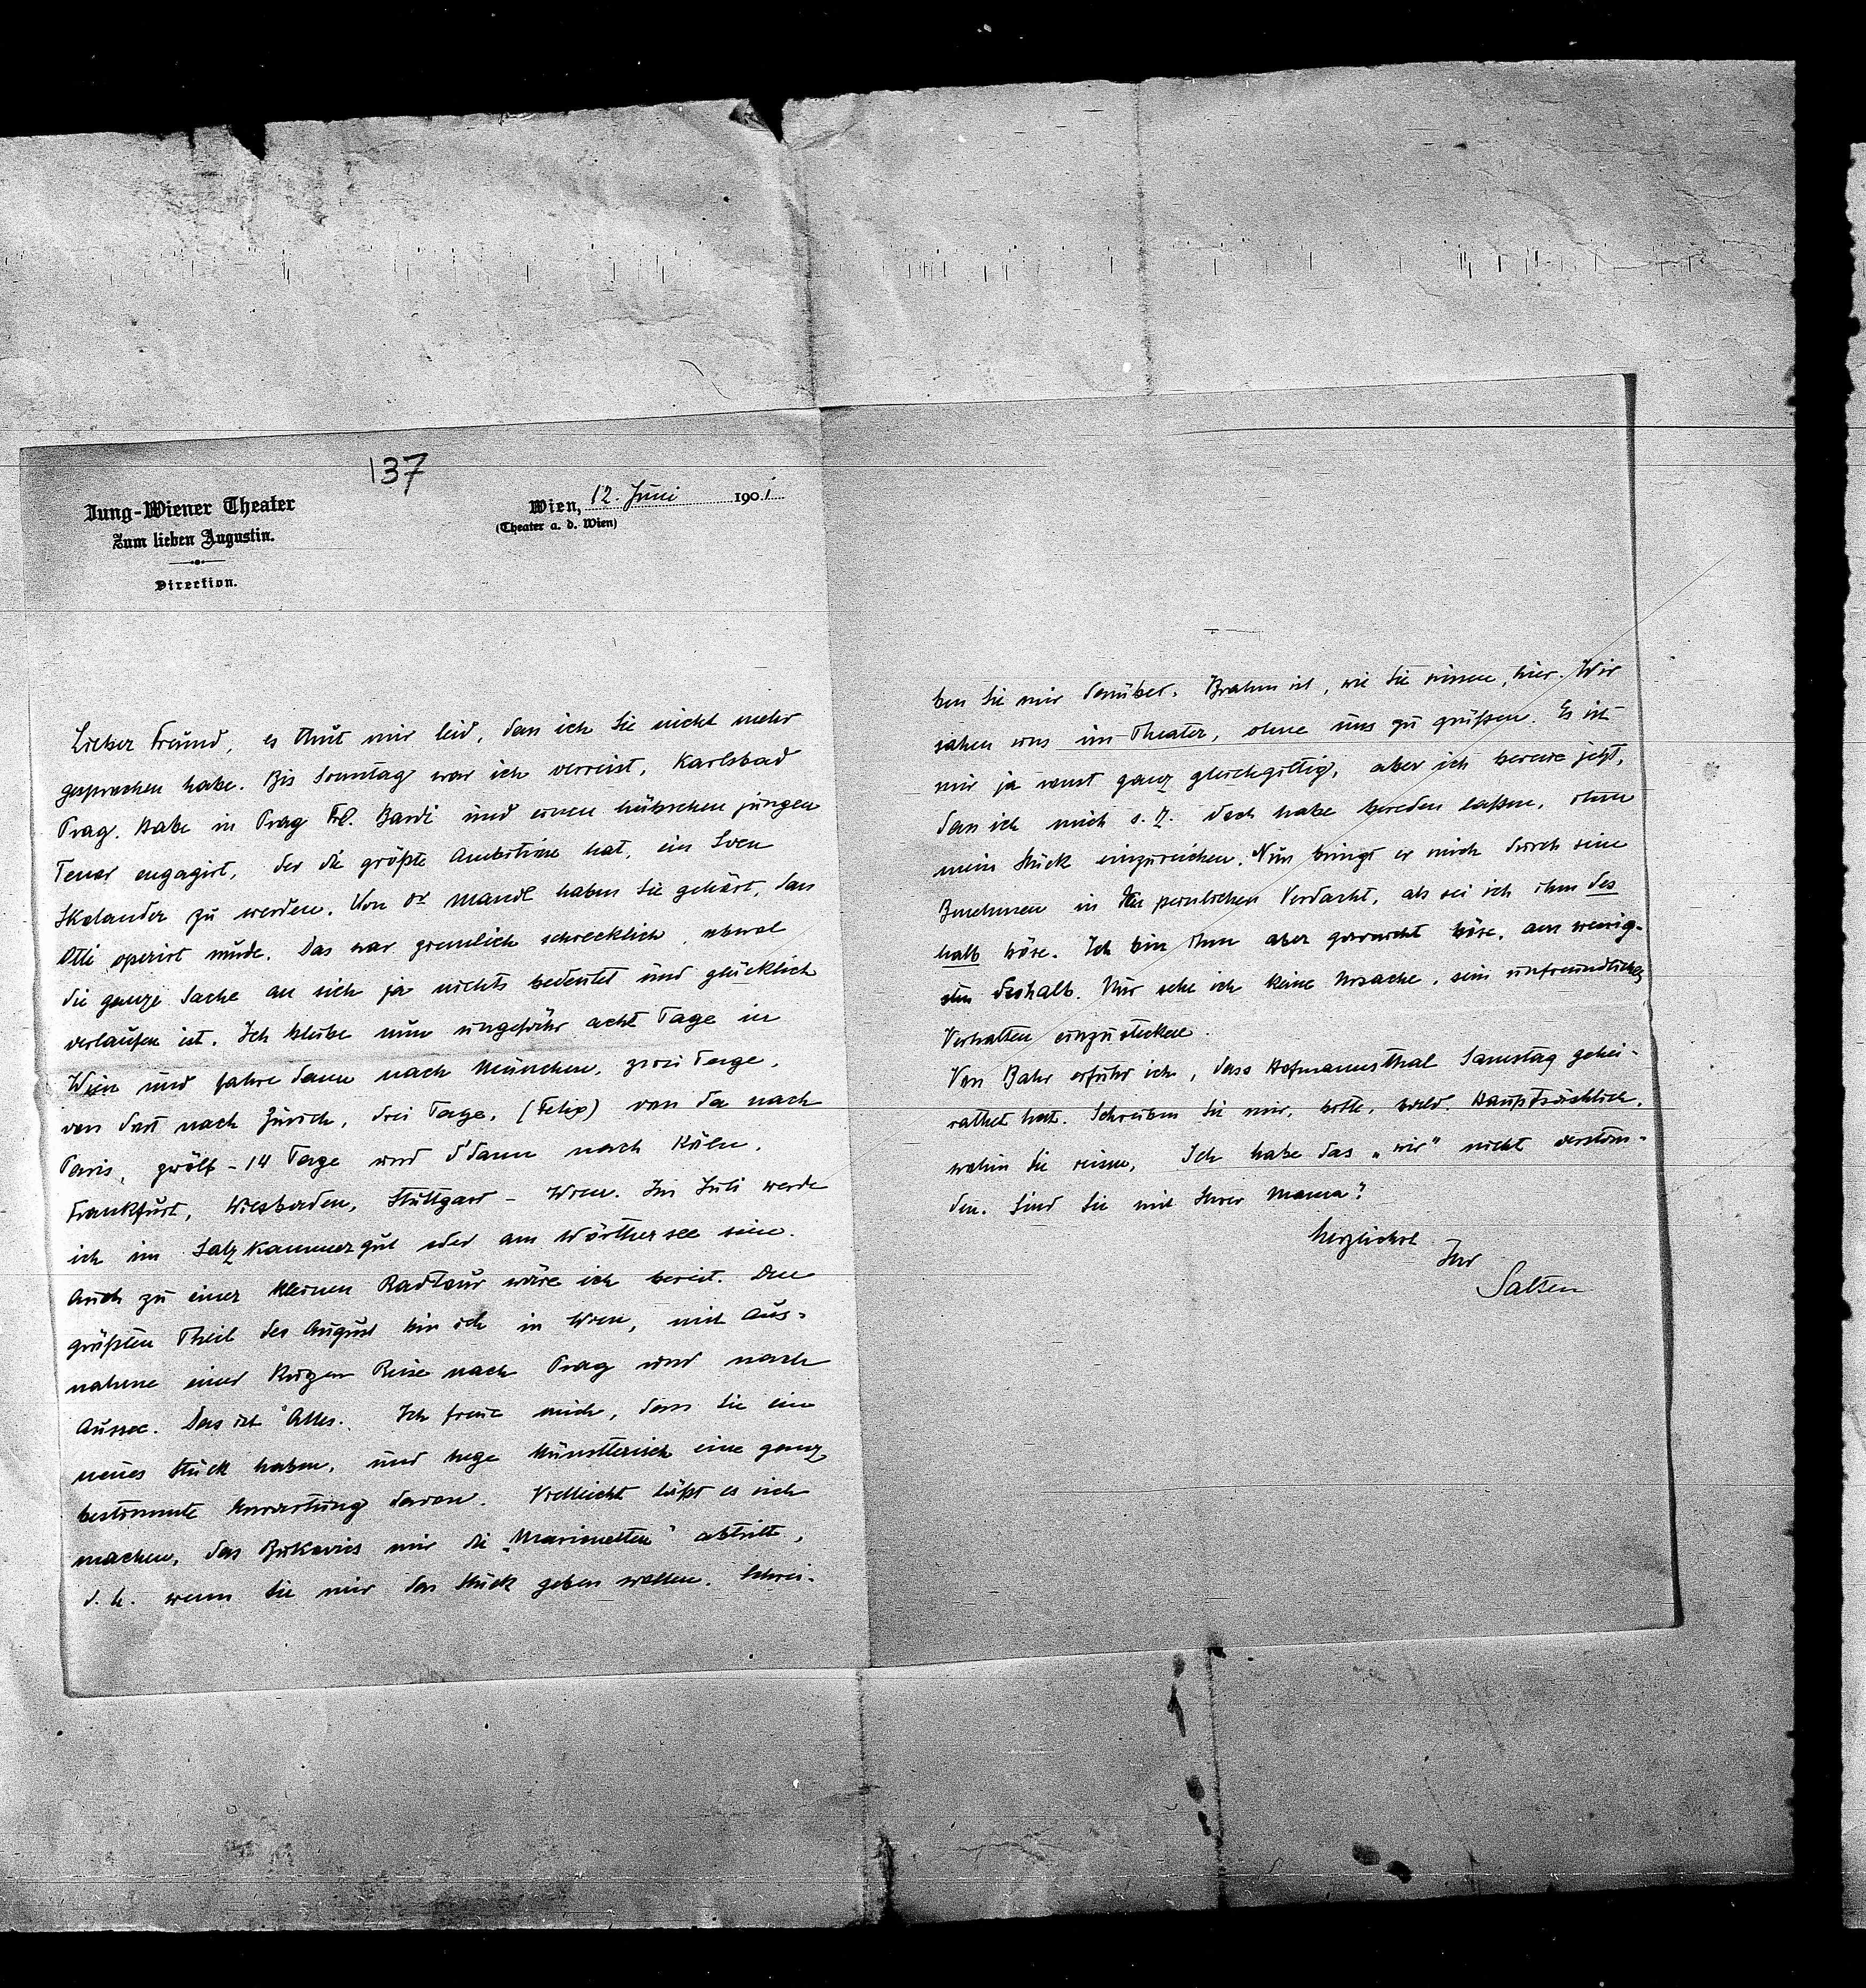 137
Jung-Wiener Theater
Zum lieben Augustin.
Direction.
Wien, 12. Juni 1901
(Theater a. d. Wien)
Lieber Freund, es thut mir leid, dass ich Sie nicht mehr
gesprochen habe. Bis Sonntag war ich verreist, Karlsbad
Prag. Habe in Prag Frl. Bardi und einen hübschen jungen
Tenor engagirt, der die größte Ambition hat, ein Sven
Skolander zu werden. Von Dr Mandl haben Sie gehört, dass
Otti operirt wurde. Das war greulich schrecklich, obwol
die ganze Sache an sich ja nichts bedeutet und glücklich
verlaufen ist. Ich bleibe nun ungefähr acht Tage in
Wien und fahre dann nach München, zwei Tage,
von dort nach Zürich, drei Tage, (Felix) von da nach
Paris, zwölf-14 Tage und dann nach Köln,
Frankfurt, Wiesbaden, Stuttgart - Wien. Im Juli werde
ich im Salzkammergut oder am Wörthersee sein.
Auch zu einer kleinen Radtour wäre ich bereit. Den
größten Theil des August bin ich in Wien, mit Aus-
nahme einer kurzen Reise nach Prag und nach
Aussee. Das ist Alles. Ich freue mich, dass Sie ein
neues Stück haben, und hege künstlerisch eine ganz
bestimmte Erwartung davon. Vielleicht läßt es sich
machen, das Bukovics mir die „Marionetten" abtritt,
d. h. wenn Sie mir das Stück geben wollen. Schrei-
ben Sie mir darüber. Brahm ist, wie Sie wissen, hier. Wir
sahen uns im Theater, ohne uns zu grüßen. Es ist
mir ja sonst ganz gleichgiltig, aber ich bereue jetzt,
dass ich mich s. Z. doch habe bereden lassen, ihm
mein Stück einzureichen. Nun bringt er mich durch sein
Benehmen in den peinlichen Verdacht, als sei ich ihm des
halb böse. Ich bin ihm aber garnicht böse, am wenig-
sten deshalb. Nur sehe ich keine Ursache, sein unfreundliches
Verhalten einzustecken.
Von Bahr erfuhr ich, dass Hofmannsthal Samstag gehei-
rathet hat. Schreiben Sie mir, bitte, bald. Hauptsächlich,
wohin Sie reisen. Ich habe das „wir" nicht verstan-
den. Sind Sie mit Ihrer Mama?
Herzlichst
Ihr
Salten